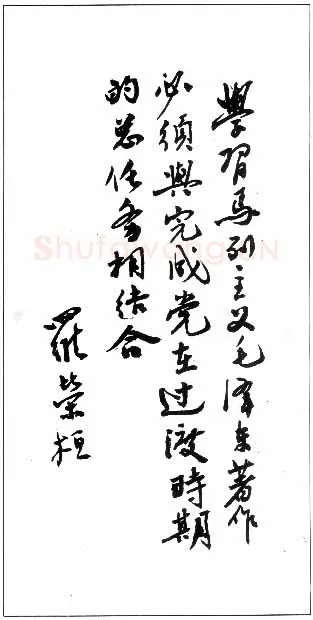 學習馬列主义毛泽东著作
必須與完成党在过渡時期
的总任务相结合
羅榮桓
Shufawang.CN